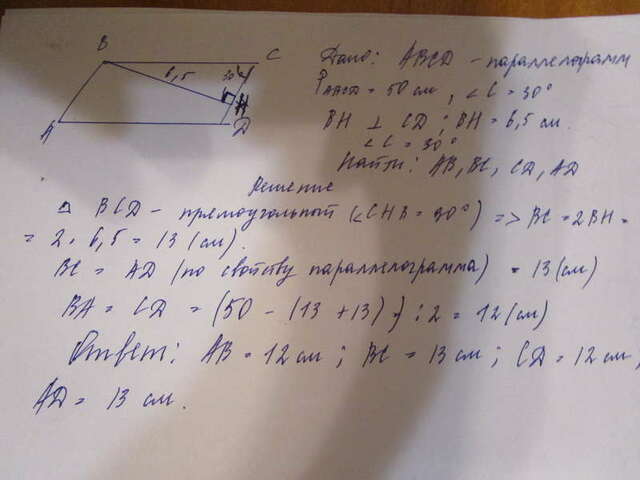 B
C
6,5
30°
A
H
D
Дано: ABCD - параллелограмм
PABCD = 50 см, ∠C = 30°
BH ⊥ CD; BH = 6,5 см.
∠C = 30°
Найти: AB, BC, CD, AD
Решение
△ BCD - прямоугольной (∠CHB = 90°) => BC = 2BH =
= 2 · 6,5 = 13 (см).
BC = AD (по свойству параллелограмма) = 13 (см)
BA = CD = (50 - (13 + 13)) : 2 = 12 (см)
Ответ: AB = 12 см; BC = 13 см; CD = 12 см,
AD = 13 см.